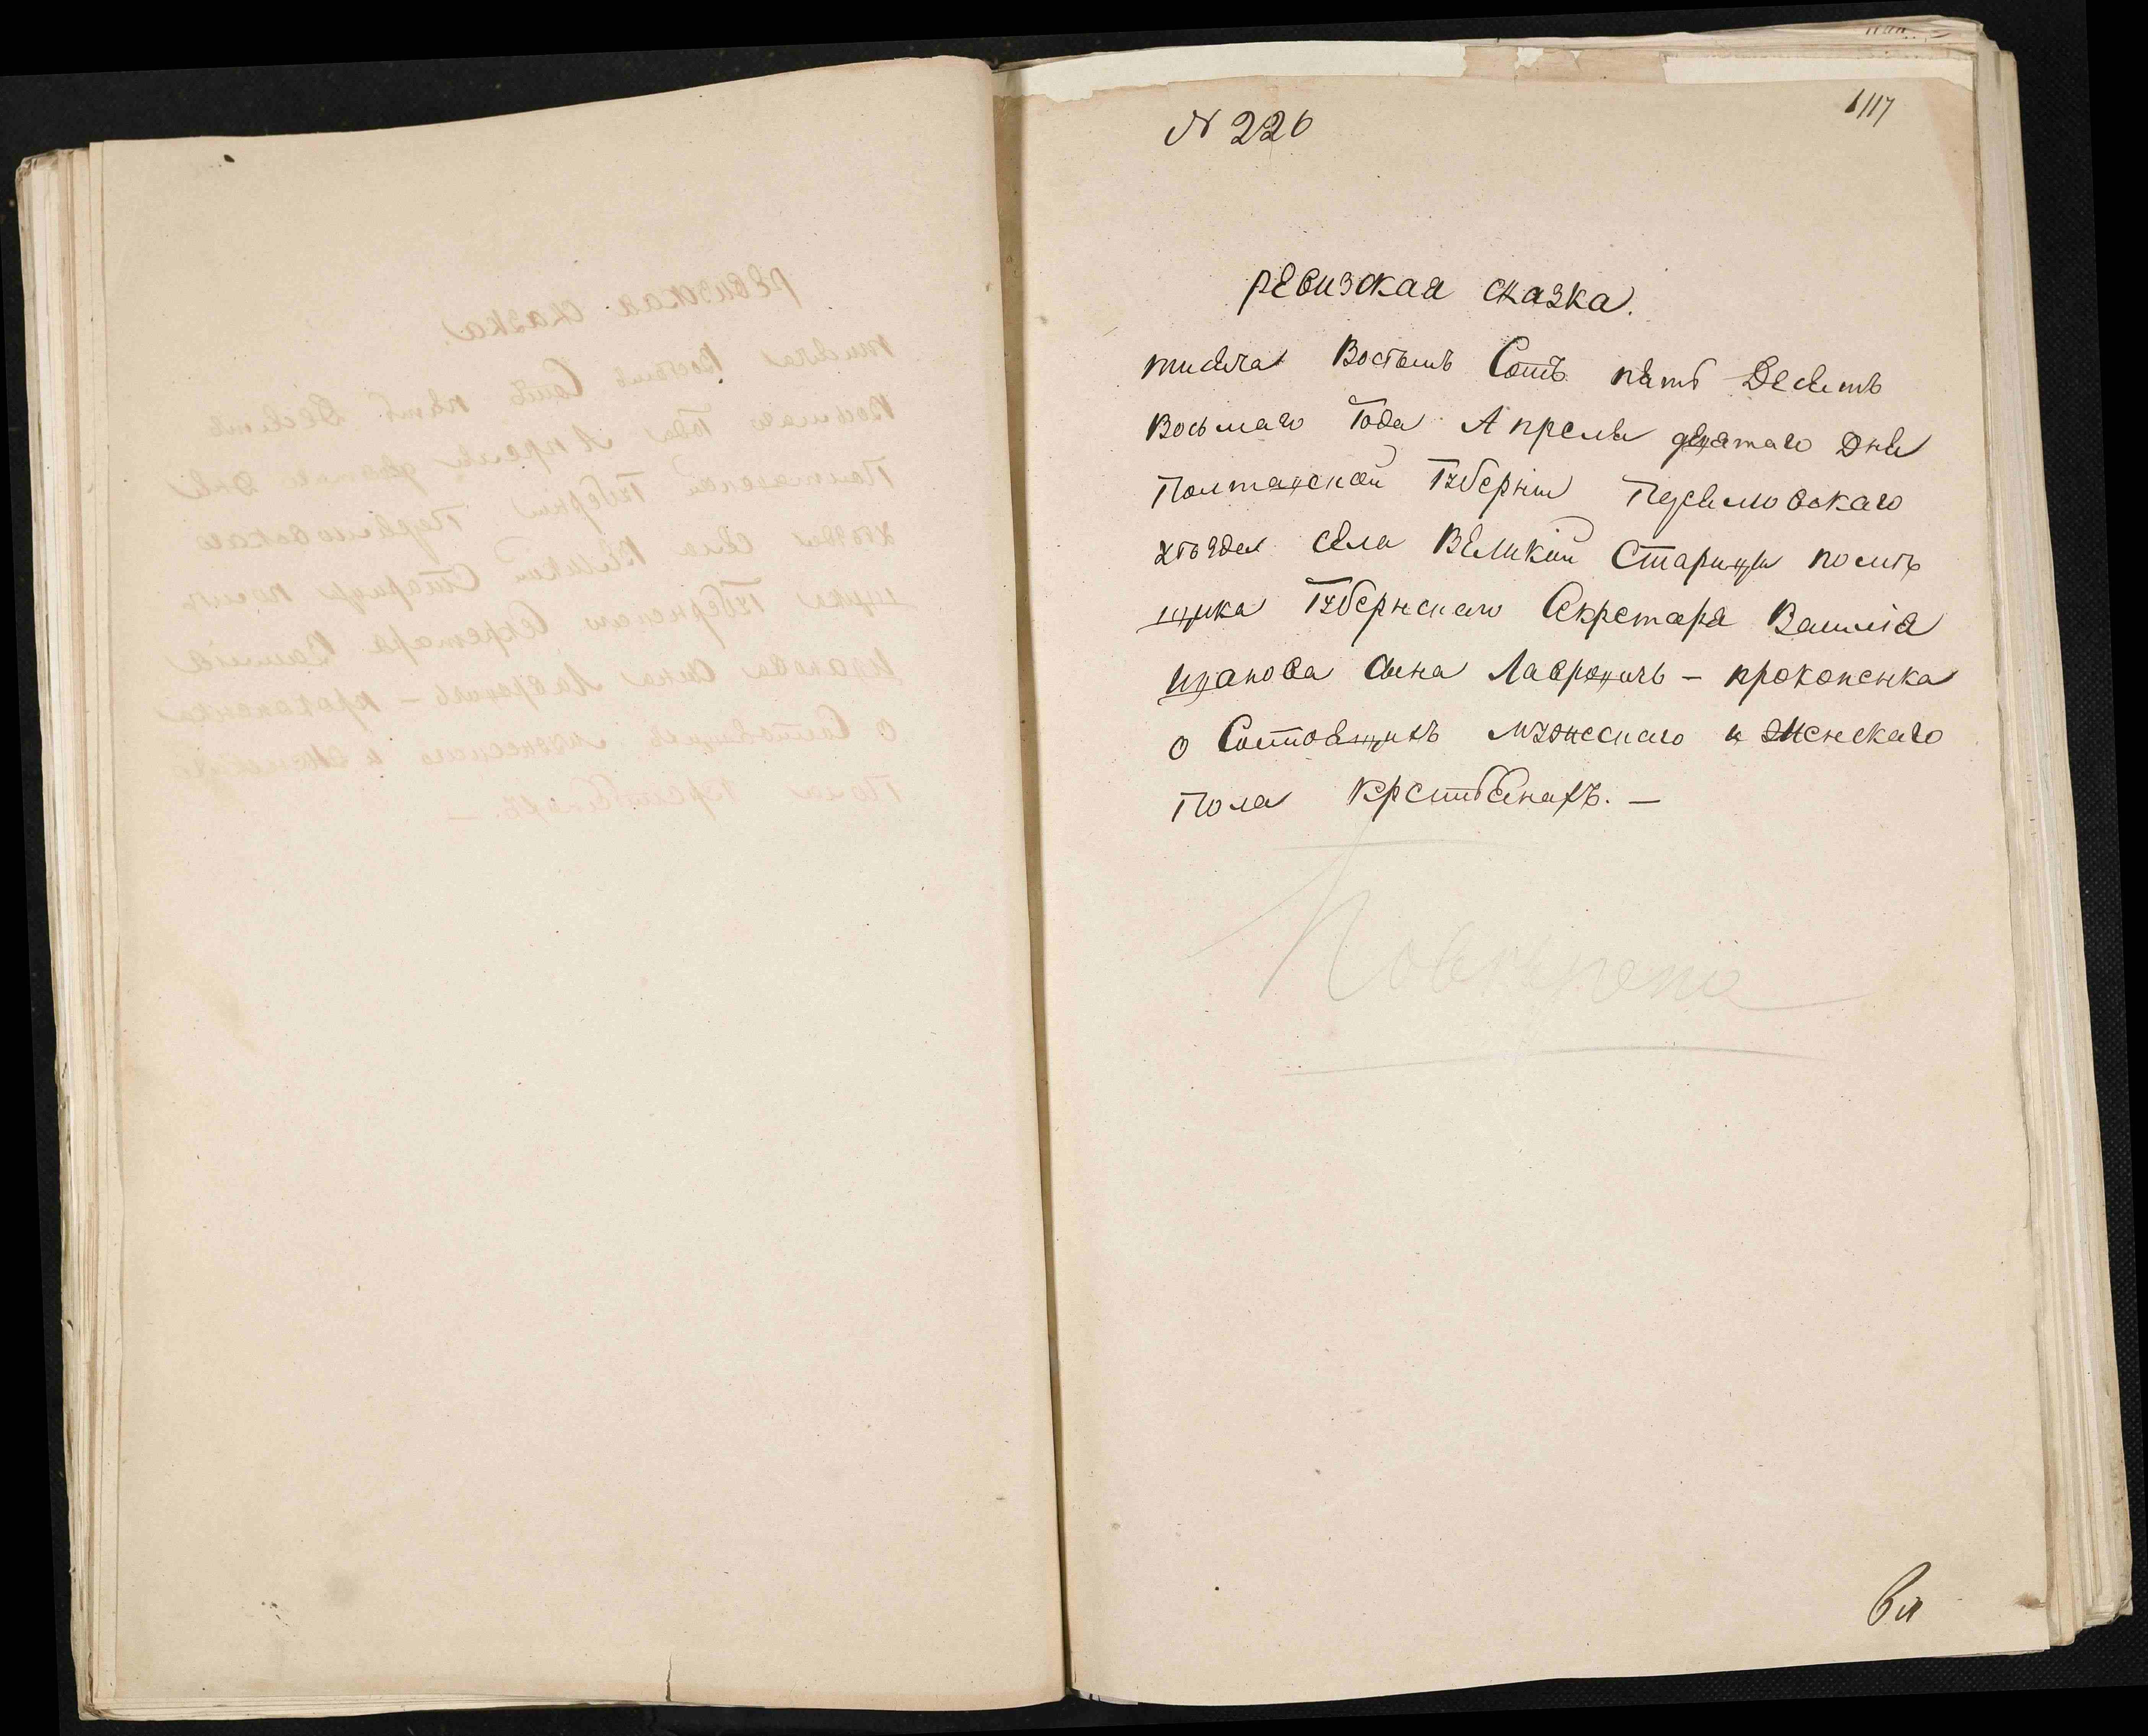 N 226
1117
ревизская сказка.
тисяча Восьемь Сотъ пять Десять
Восьмаго Года Апреля девятаго Дня
Полтавской Губернии Переясловскаго
уѣзда села Великой Старици помѣ
щика Губернскаго Секретаря Василия
иванова сына Лавровичь - прокопенка
о Состоящихъ мужескаго и женскаго
пола крестьянахъ. —
Повѣрена